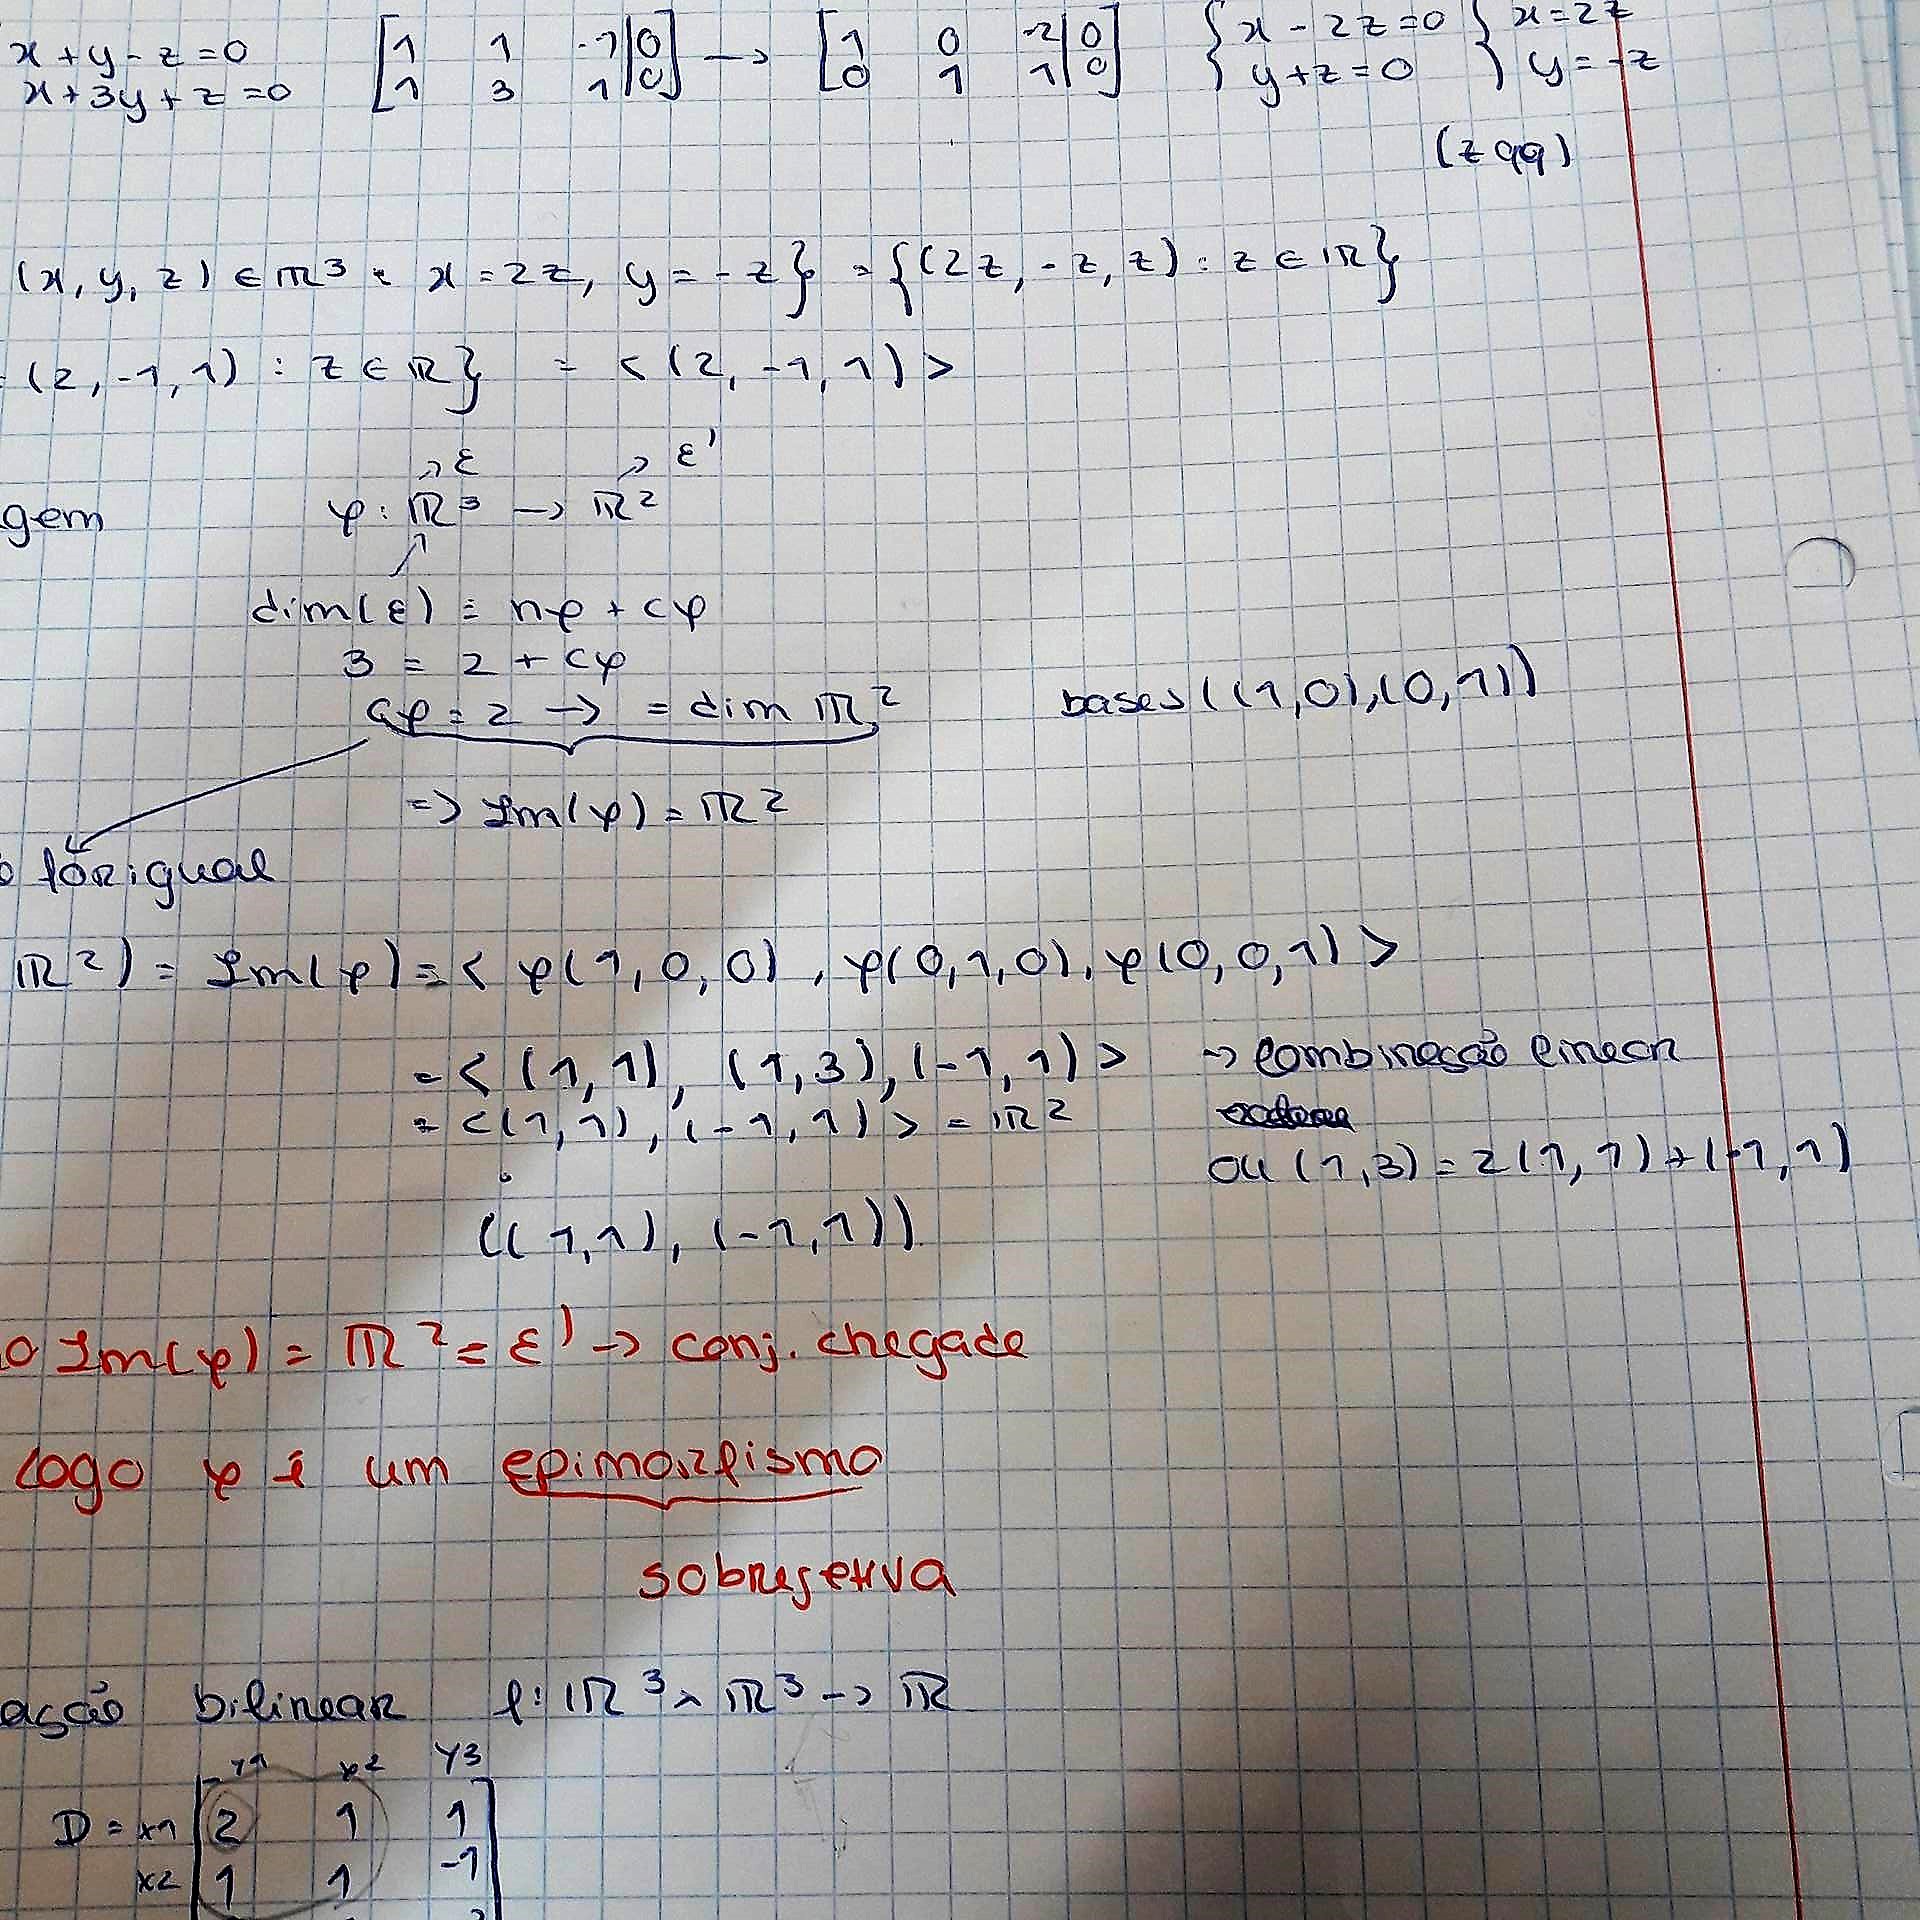 x + y - z = 0 [1 1 -1 | 0] → [1 0 -2 | 0] { x - 2z = 0 { x = 2z
x + 3y + z = 0 [1 3 1 | 0] [0 1 1 | 0] { y + z = 0 { y = -z
(z qq)
(x, y, z) ∈ ℝ³ : x = 2z, y = -z} = {(2z, -z, z) : z ∈ ℝ}
(2, -1, 1) : z ∈ ℝ} = <(2, -1, 1)>
→ ε → ε'
gem φ : ℝ³ → ℝ²
dim(ε) = nφ + cφ
3 = 2 + cφ
cφ = 2 → = dim ℝ² bases ((1,0),(0,1))
=> Im(φ) = ℝ²
for igual
ℝ²) = Im(φ) = < φ(1, 0, 0), φ(0, 1, 0), φ(0, 0, 1) >
= < (1, 1), (1, 3), (-1, 1) > → combinação linear
= < (1, 1), (-1, 1) > = ℝ²
ou (1, 3) = 2(1, 1) + (-1, 1)
((1, 1), (-1, 1))
o Im(φ) = ℝ² = ε' → conj. chegada
logo φ é um epimorfismo
sobrejetiva
ação bilinear f : ℝ³ × ℝ³ → ℝ
y1 y2 y3
D = x1 [2 1 1]
x2 [1 1 -1]